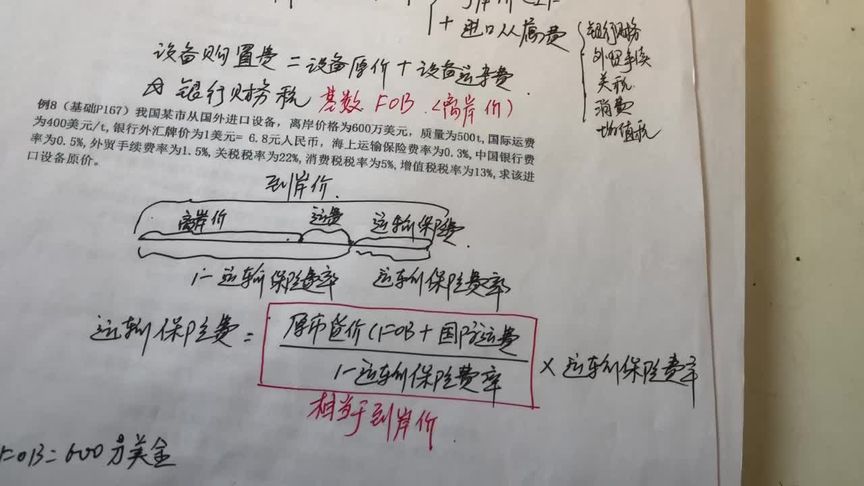 +进口从属费
银行财务
外贸手续
关税
消费
增值税
设备购置费=设备原价+设备运杂费
银行财务税 基数 FOB(离岸价)
例8(基础P167)我国某市从国外进口设备,离岸价格为600万美元,质量为500t,国际运费
为400美元/t,银行外汇牌价为1美元=6.8元人民币,海上运输保险费率为0.3%,中国银行费
率为0.5%,外贸手续费率为1.5%,关税税率为22%,消费税税率为5%,增值税税率为13%,求该进
口设备原价。
到岸价
离岸价 运费 运输保险费
1-运输保险费率 运输保险费率
运输保险费=
原币货价(FOB+国际运费
1-运输保险费率
×运输保险费率
相当于到岸价
FOB=600万美金